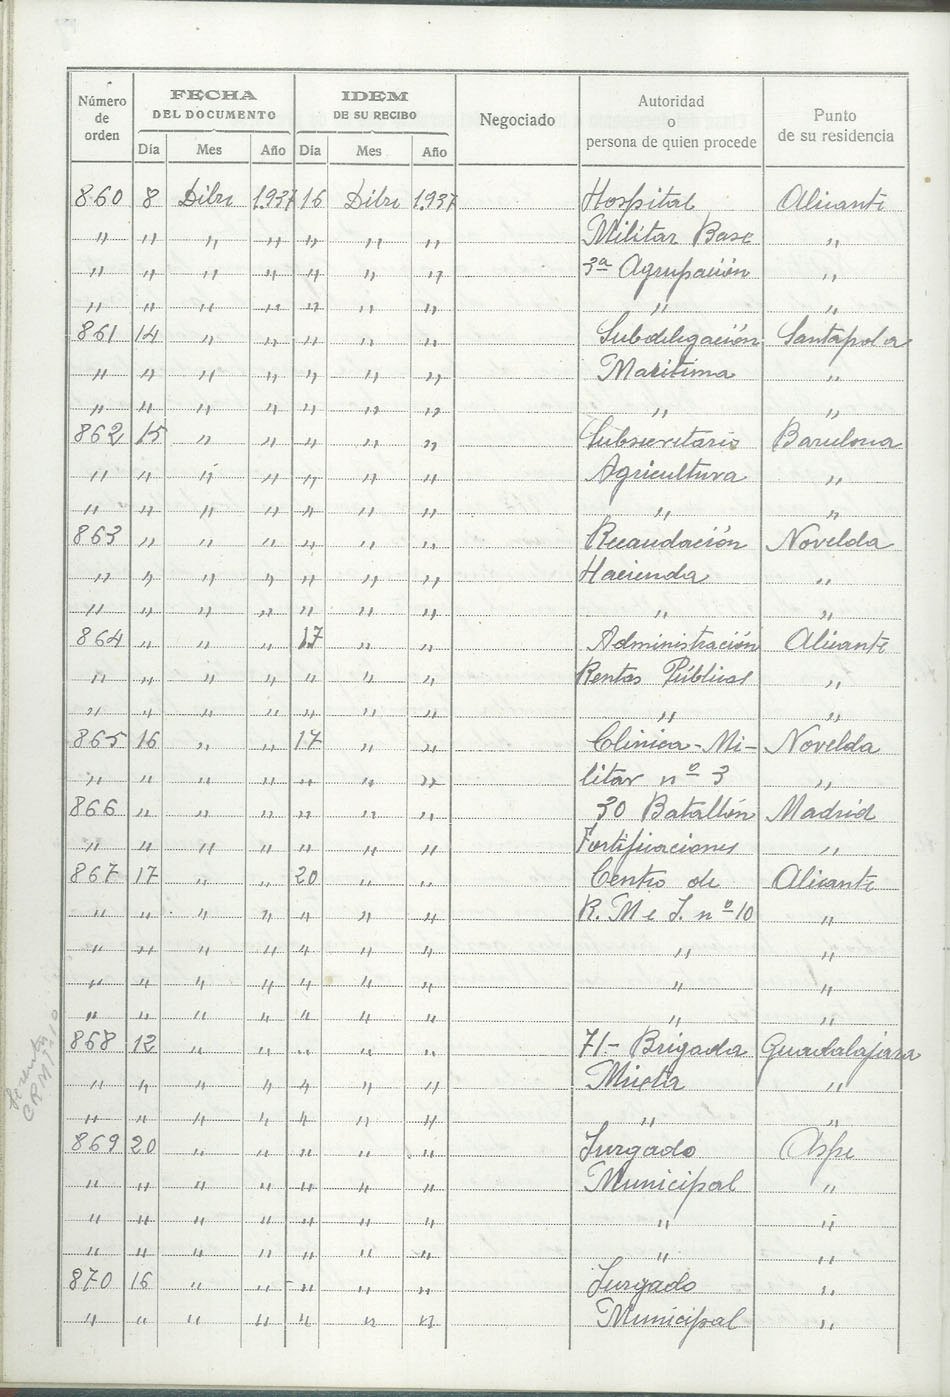 Número de orden | FECHA DEL DOCUMENTO | IDEM DE SU RECIBO | Negociado | Autoridad o persona de quien procede | Punto de su residencia
Día | Mes | Año | Día | Mes | Año
860 8 Dibre 1.937 16 Dibre 1.937 Hospital Alicante
" " " " " " " Militar Base "
" " " " " " " 3ª Agrupación "
" " " " " " " " "
861 14 " " " " " Subdelegación Santapola
" " " " " " " Marítima "
" " " " " " " " "
862 15 " " " " " Subsecretario Barcelona
" " " " " " " Agricultura "
" " " " " " " " "
863 " " " " " " Recaudación Novelda
" " " " " " " Hacienda "
" " " " " " " " "
864 " " " 17 " " Administración Alicante
" " " " " " " Rentas Públicas "
" " " " " " " " "
865 16 " " 17 " " Clínica-Mi- Novelda
" " " " " " " litar nº 3 "
866 " " " " " " 30 Batallón Madrid
" " " " " " " Fortificaciones "
867 17 " " 20 " " Centro de Alicante
" " " " " " " R. M e I. nº 10 "
" " " " " " " " "
" " " " " " " " "
" " " " " " " " "
868 12 " " " " " 71- Brigada Guadalajara
" " " " " " " Mixta "
" " " " " " " " "
869 20 " " " " " Jurgado Aspe
" " " " " " " Municipal "
" " " " " " " " "
" " " " " " " " "
870 16 " " " " " Jurgado "
" " " " " " " Municipal "